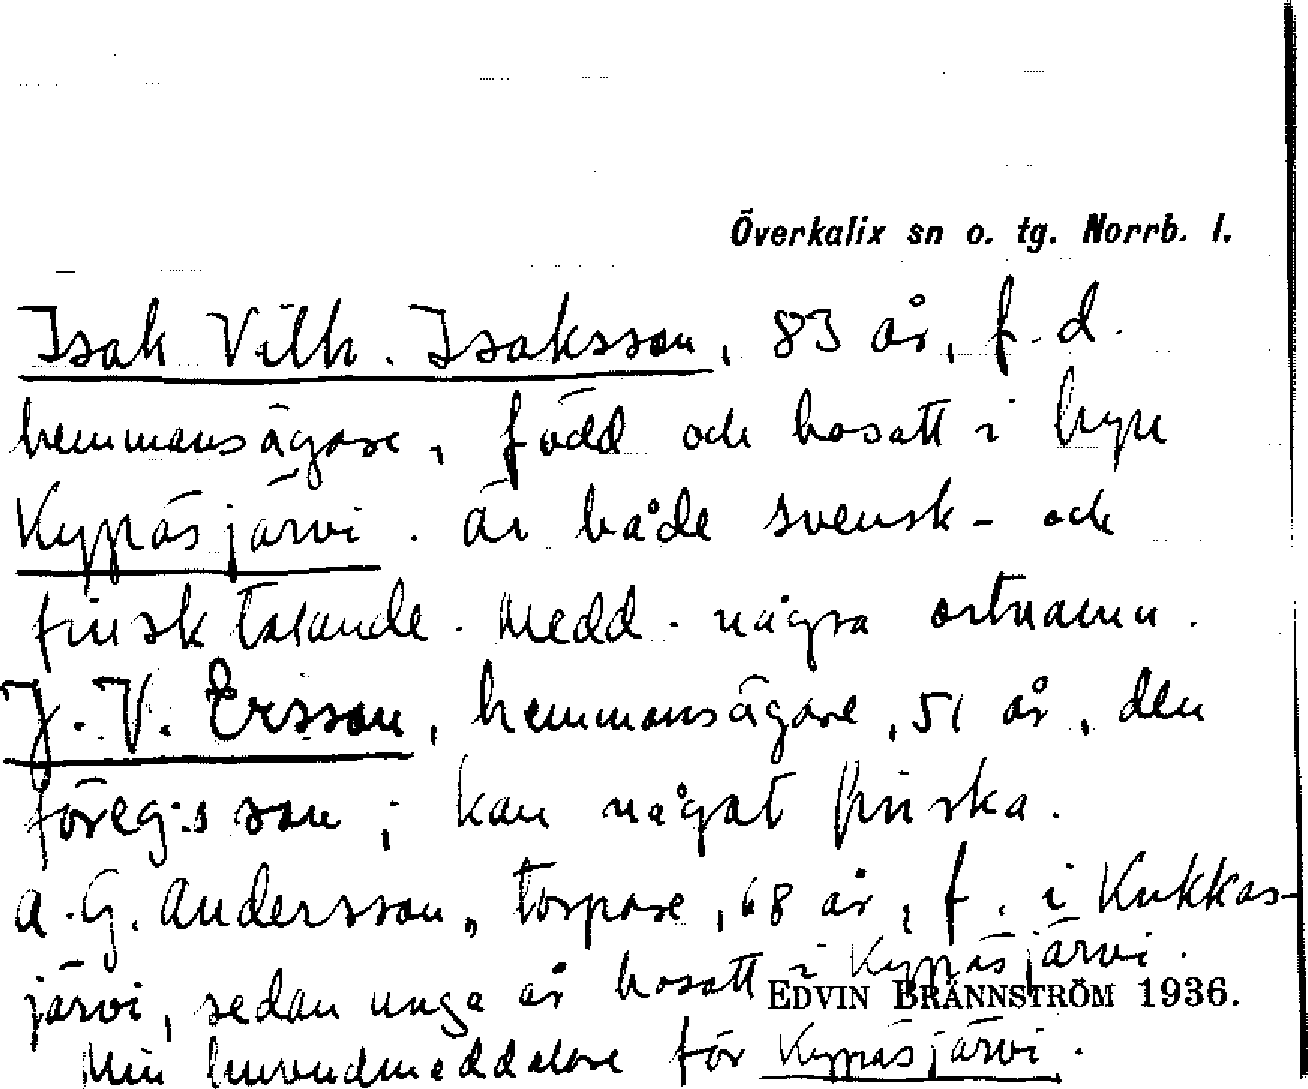 Överkalix sn o. tg. Norrb. l.
Isak Vilh. Isaksson, 83 år, f.d.
hemmansägare, född och bosatt i byn
Kypäsjärvi. är både svensk- och
finsktalande. Medd. några ortnamn.
J. V. Ersson, hemmansägare, 51 år, den
föreg:s son; kan något finska.
A. G. Andersson, torpare, 68 år, f. i Kukkas-
järvi, sedan unga år bosatt i Kypäsjärvi.
EDVIN BRÄNNSTRÖM 1936.
Min huvudmeddelare för Kypäsjärvi.